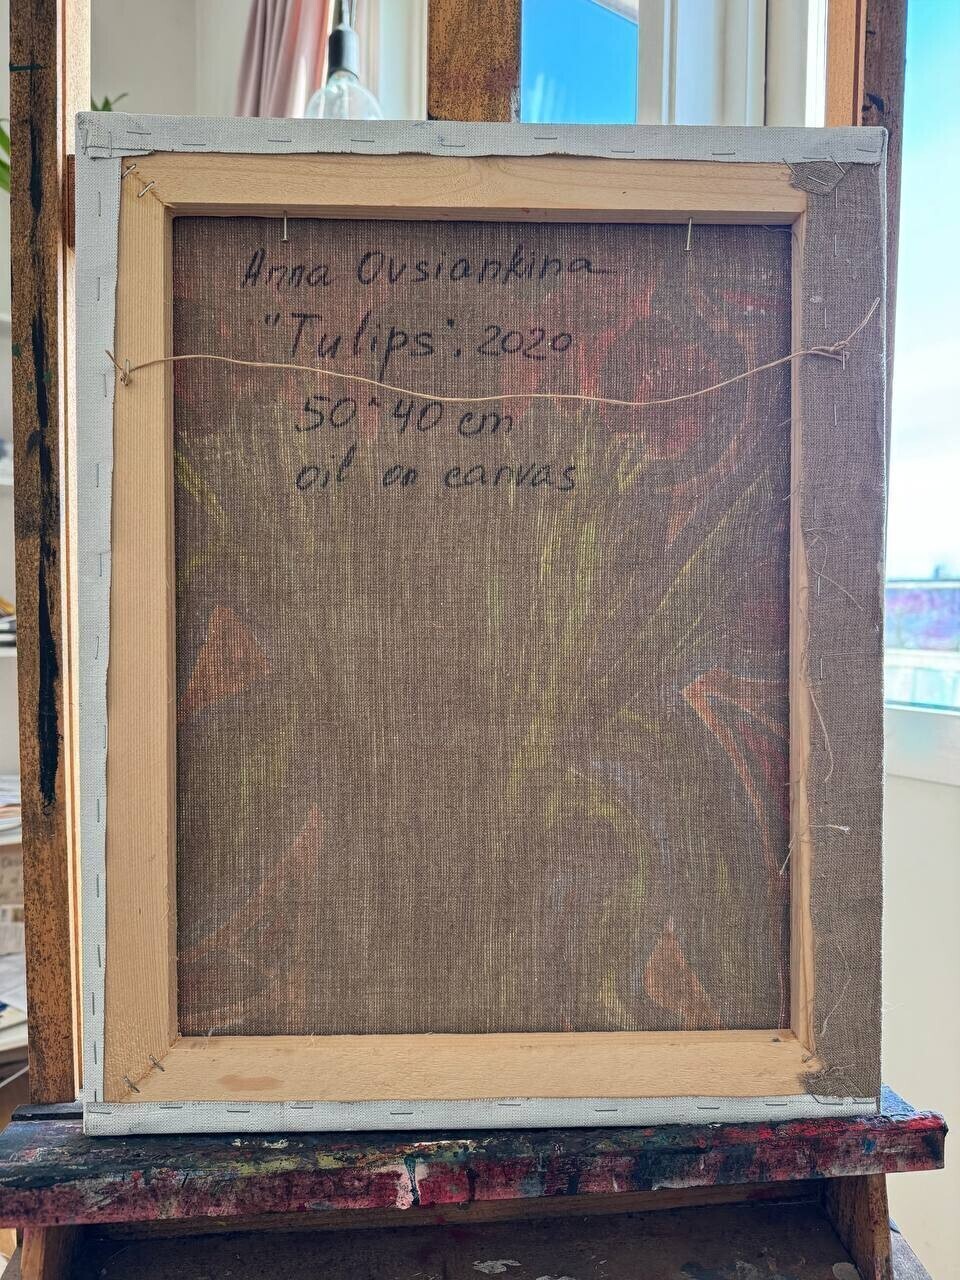 Anna Ovsiankina
"Tulips". 2020
50*40 cm
oil on canvas